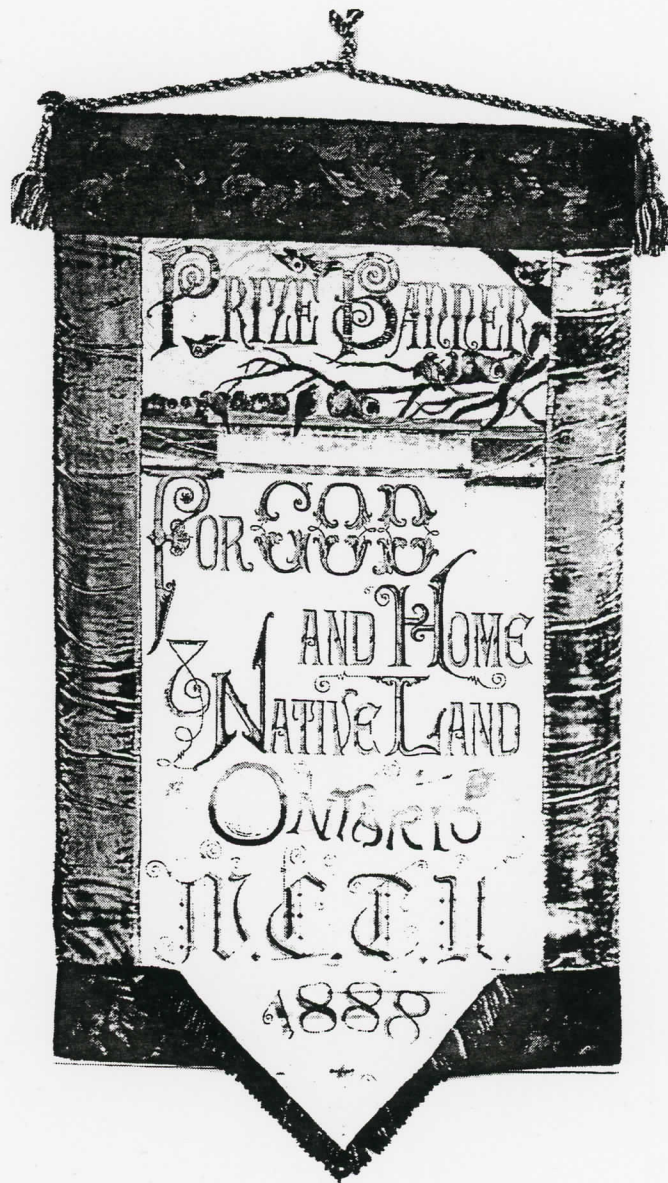 PRIZE BANNER
FOR GOD
AND HOME
& NATIVE LAND
ONTARIO
W.C.T.U.
1888